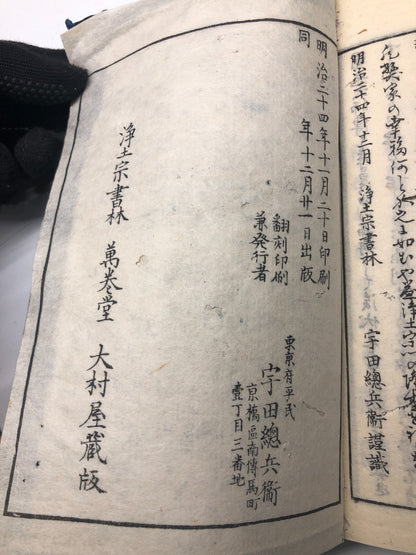 明治二十四年十二月 浄土宗書林 宇田總兵衞謹識
明治二十四年十一月二十日印刷
同 年十二月廿一日出版
翻刻印刷
兼発行者
東京府平民
宇田總兵衞
京橋區南傳馬町
壹丁目三番地
浄土宗書林 萬巻堂 大村屋蔵版